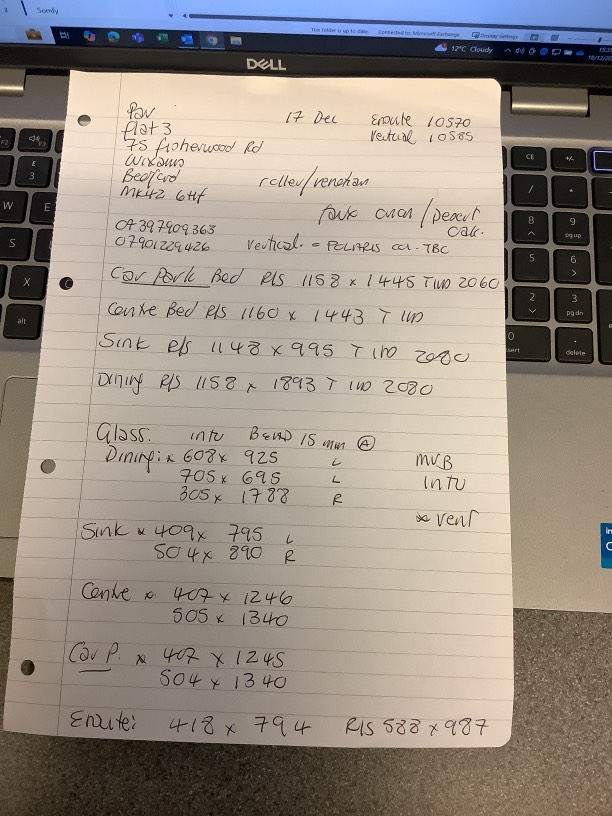 Somfy
This folder is up to date. Connected to: Microsoft Exchange Display Settings
12°C Cloudy
DELL
Pav 17 Dec Enroute 10570
flat 3 Vertical 10585
75 fisherwood Rd
Wixams
Bedford roller/venetian
MK42 6HF
calc.
07397909363
07901229426 Vertical = POLARIS col - TBC
Car Park Bed R/S 1158 x 1445 T IWD 2060
Centre Bed R/S 1160 x 1443 T IWD
Sink R/S 1148 x 995 T IWD 2080
Dining R/S 1158 x 1893 T IWD 2080
Glass. intu Bead 15 mm A
Dining: x 608 x 925 L MVB
705 x 695 L Intu
305 x 1788 R
x vent
Sink x 409 x 795 L
504 x 890 R
Centre x 407 x 1246
505 x 1340
Car P. x 407 x 1245
504 x 1340
Enroute: 418 x 794 R/S 588 x 987